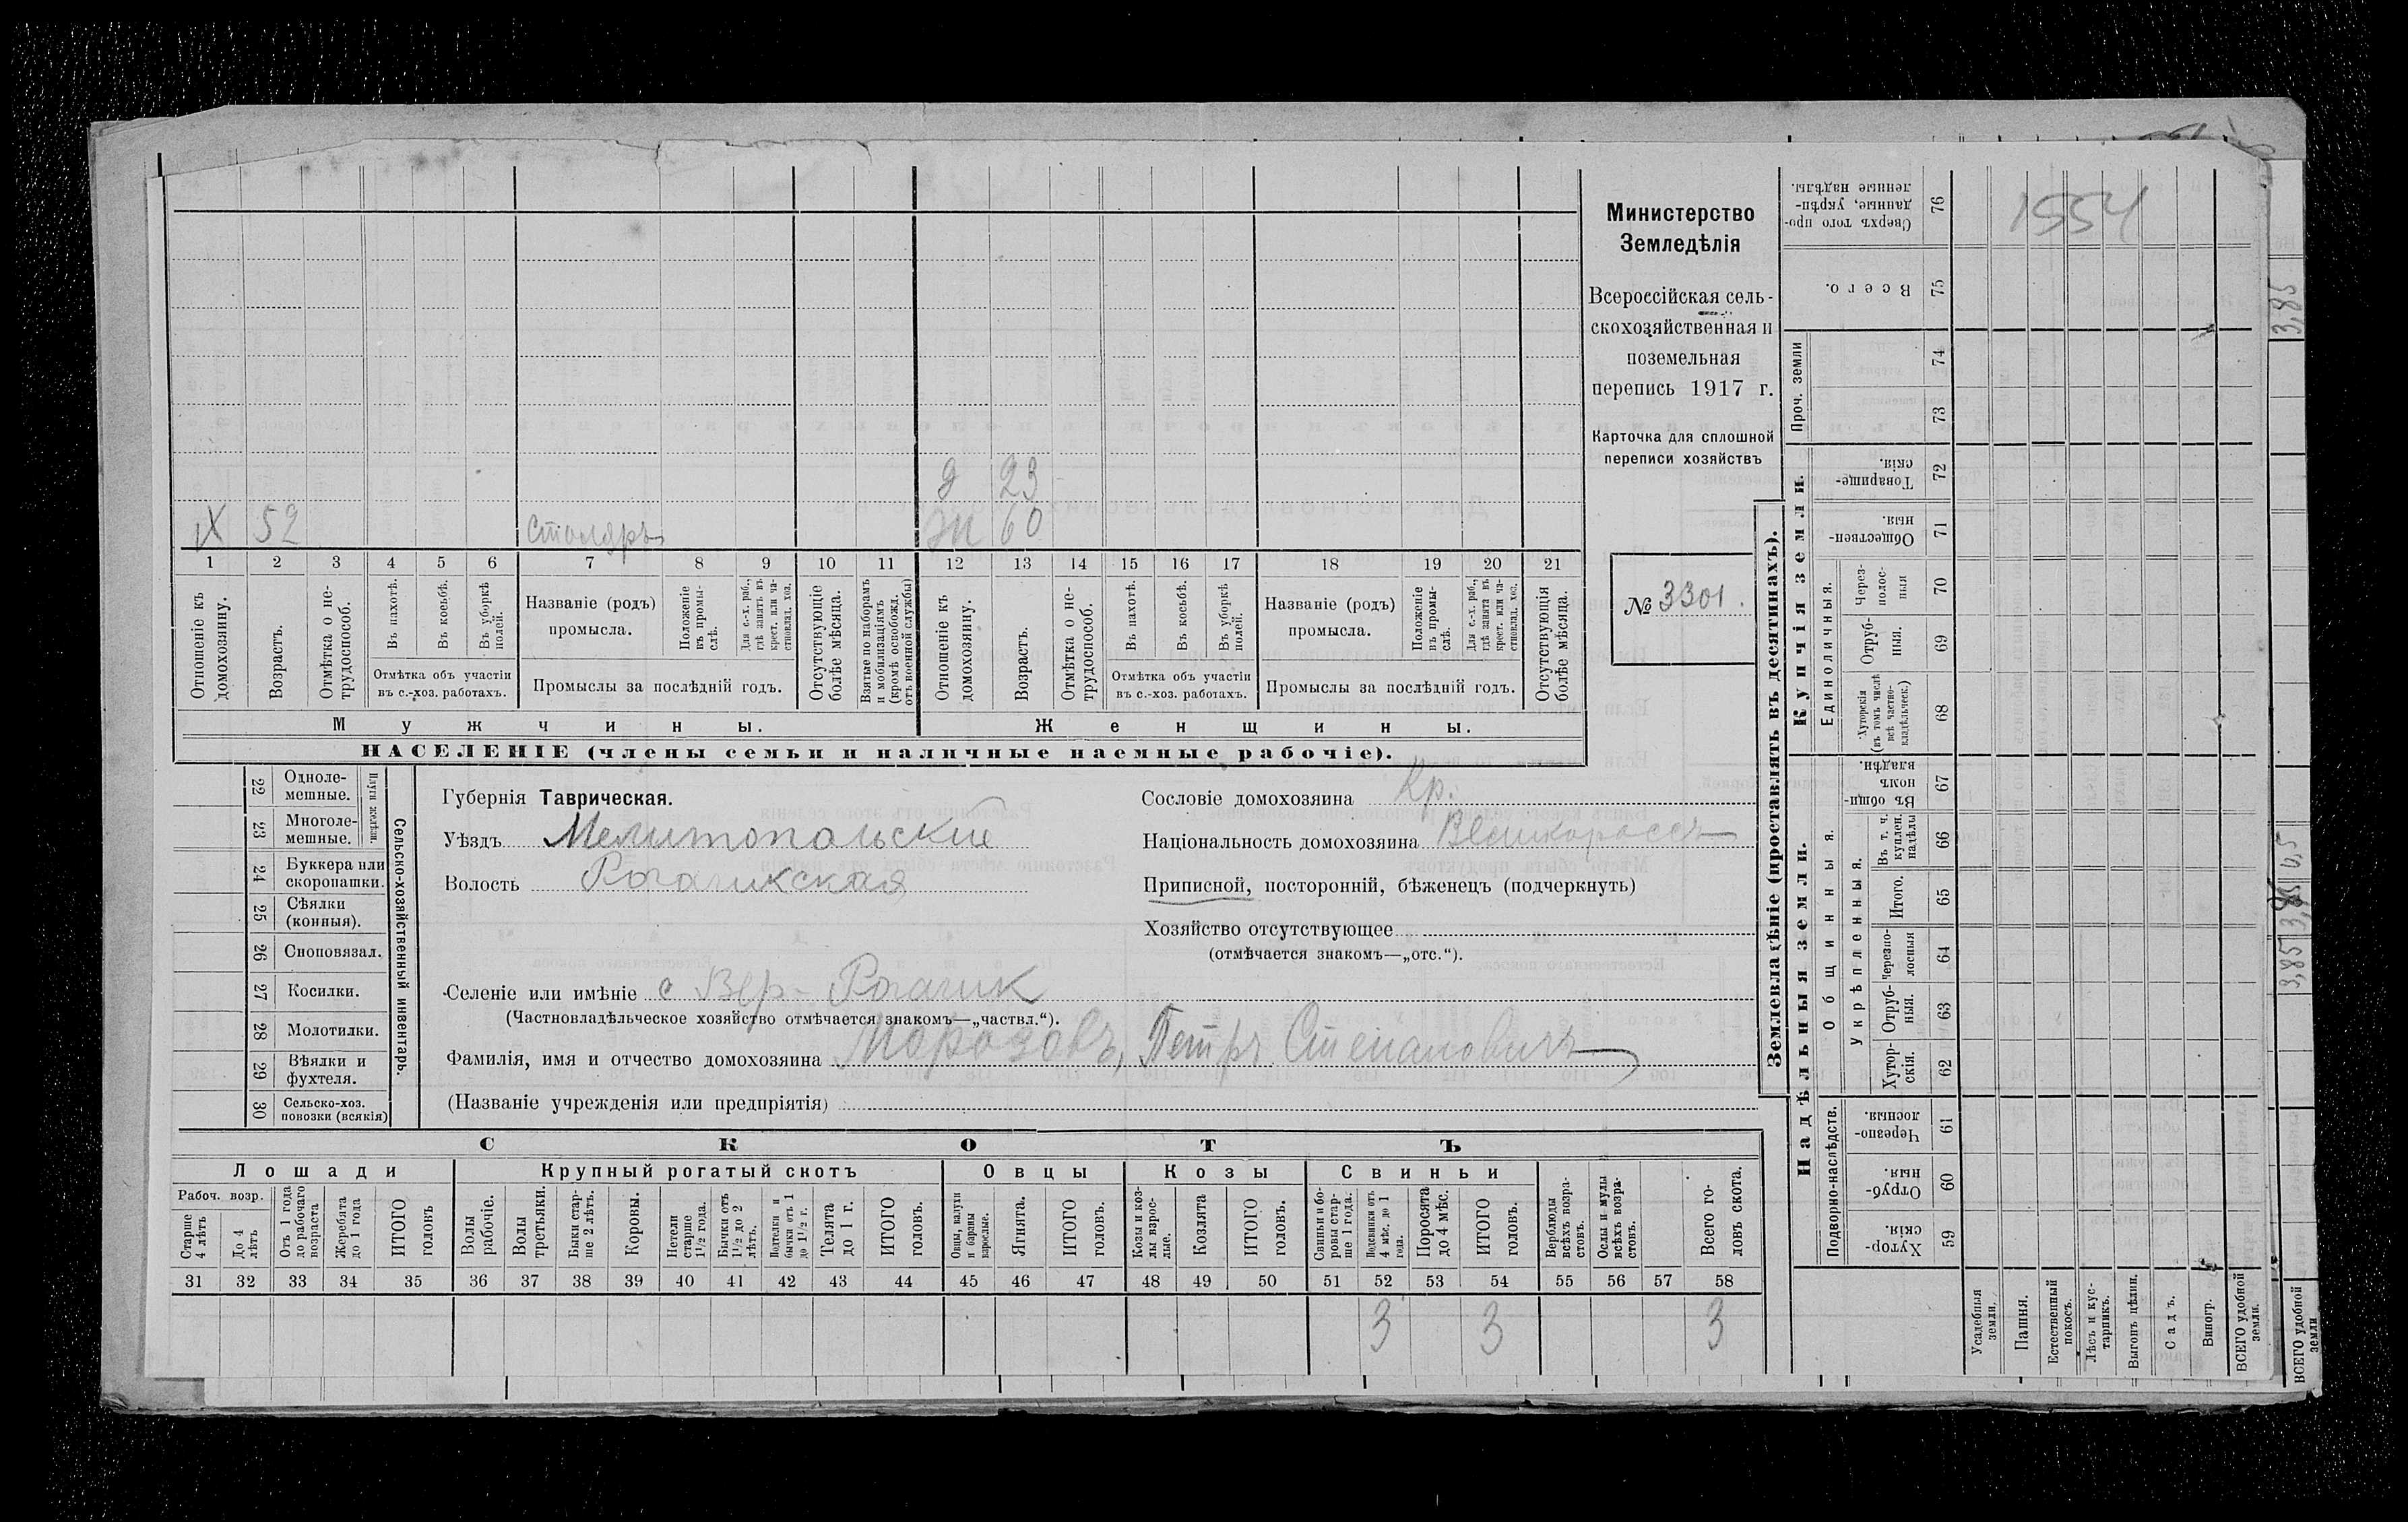 д 23
Х 52 столяръ ж 60
1 2 3 4 5 6 7 8 9 10 11 12 13 14 15 16 17 18 19 20 21
Отношеніе къ домохозяину.
Возрастъ.
Отмѣтка о не-трудоспособ.
Въ пахотѣ.
Въ косьбѣ.
Въ уборкѣ полей.
Отмѣтка объ участіи
въ с.-хоз. работахъ.
Названіе (родъ)
промысла.
Положеніе въ промы-слѣ.
Для с.-х. раб., гдѣ занятъ въ крест. или ча-стновлад. хоз.
Промыслы за послѣдній годъ.
Отсутствующіе болѣе мѣсяца.
Взятые по наборамъ и мобилизаціямъ (кромѣ освобожд. отъ военной службы)
Отношеніе къ домохозяину.
Возрастъ.
Отмѣтка о не-трудоспособ.
Въ пахотѣ.
Въ косьбѣ.
Въ уборкѣ полей.
Отмѣтка объ участіи
въ с.-хоз. работахъ.
Названіе (родъ)
промысла.
Положеніе въ промы-слѣ.
Для с.-х. раб., гдѣ занята въ крест. или ча-стновлад. хоз.
Промыслы за послѣдній годъ.
Отсутствующія болѣе мѣсяца.
Мужчины. Женщины.
НАСЕЛЕНІЕ (члены семьи и наличные наемные рабочіе).
Министерство
Земледѣлія
Всероссійская сель-
скохозяйственная и
поземельная
перепись 1917 г.
Карточка для сплошной
переписи хозяйствъ
№ 3301.
22 Одноле-мешные.
23 Многоле-мешные.
Плуги желѣзн.
24 Буккера или скоропашки.
25 Сѣялки (конныя).
26 Сноповязал.
27 Косилки.
28 Молотилки.
29 Вѣялки и фухтеля.
30 Сельско-хоз. повозки (всякія)
Сельско-хозяйственный инвентарь.
Губернія Таврическая.
Уѣздъ Мелитопольскій
Волость Рогачикская
Сословіе домохозяина Кр.
Національность домохозяина Великороссъ
Приписной, посторонній, бѣженецъ (подчеркнуть)
Хозяйство отсутствующее
(отмѣчается знакомъ—„отс.“).
Селеніе или имѣніе с Вер-Рогачик
(Частновладѣльческое хозяйство отмѣчается знакомъ—„частвл.“).
Фамилія, имя и отчество домохозяина Морозовъ, Петръ Степановичъ
(Названіе учрежденія или предпріятія)
СКОТЪ
Лошади Крупный рогатый скотъ Овцы Козы Свиньи
Рабоч. возр.
Старше 4 лѣтъ
До 4 лѣтъ
Отъ 1 года до рабочаго возраста
Жеребята до 1 года
ИТОГО головъ
Волы рабочіе.
Волы третьяки.
Быки стар-ше 2 лѣтъ.
Коровы.
Нетели старше 1½ года.
Бычки отъ 1½ до 2 лѣтъ.
Подтелки и бычки отъ 1 до 1½ г.
Телята до 1 г.
ИТОГО головъ.
Овцы, валухи и бараны взрослые.
Ягнята.
ИТОГО головъ.
Козы и коз-лы взрос-лые.
Козлята
ИТОГО головъ.
Свиньи и бо-ровы стар-ше 1 года.
Подсвинки отъ 4 мѣс. до 1 года.
Поросята до 4 мѣс.
ИТОГО головъ.
Верблюды всѣхъ возра-стовъ.
Ослы и мулы всѣхъ возра-стовъ.
Всего го-ловъ скота.
31 32 33 34 35 36 37 38 39 40 41 42 43 44 45 46 47 48 49 50 51 52 53 54 55 56 57 58
3 3 3
Землевладѣніе (проставлять въ десятинахъ).
Надѣльныя земли. Купчія земли. Проч. земли
Подворно-наслѣдств. Общинныя. Укрѣпленныя. Единоличныя.
76 Сверхъ того про-данные, укрѣп-ленные надѣлы.
75 Всего.
74
73
72 Товарище-скія.
71 Обществен-ныя.
70 Через-полос-ныя
69 Отруб-ныя.
68 Хуторскія (въ томъ числѣ всѣ частно-владѣльческ.)
67 Въ общин-номъ владѣн.
66 Въ т. ч. куплен. надѣлы
65 Итого.
64 Черезпо-лосныя
63 Отруб-ныя.
62 Хутор-скія.
61 Черезпо-лосныя.
60 Отруб-ныя.
59 Хутор-скія.
Усадебныя земли.
Пашня.
Естественный покосъ.
Лѣсъ и кус-тарникъ.
Выгонъ цѣлин.
Садъ.
Виногр.
ВСЕГО удобной земли.
ВСЕГО удобной земли
1554
3,85
3,85